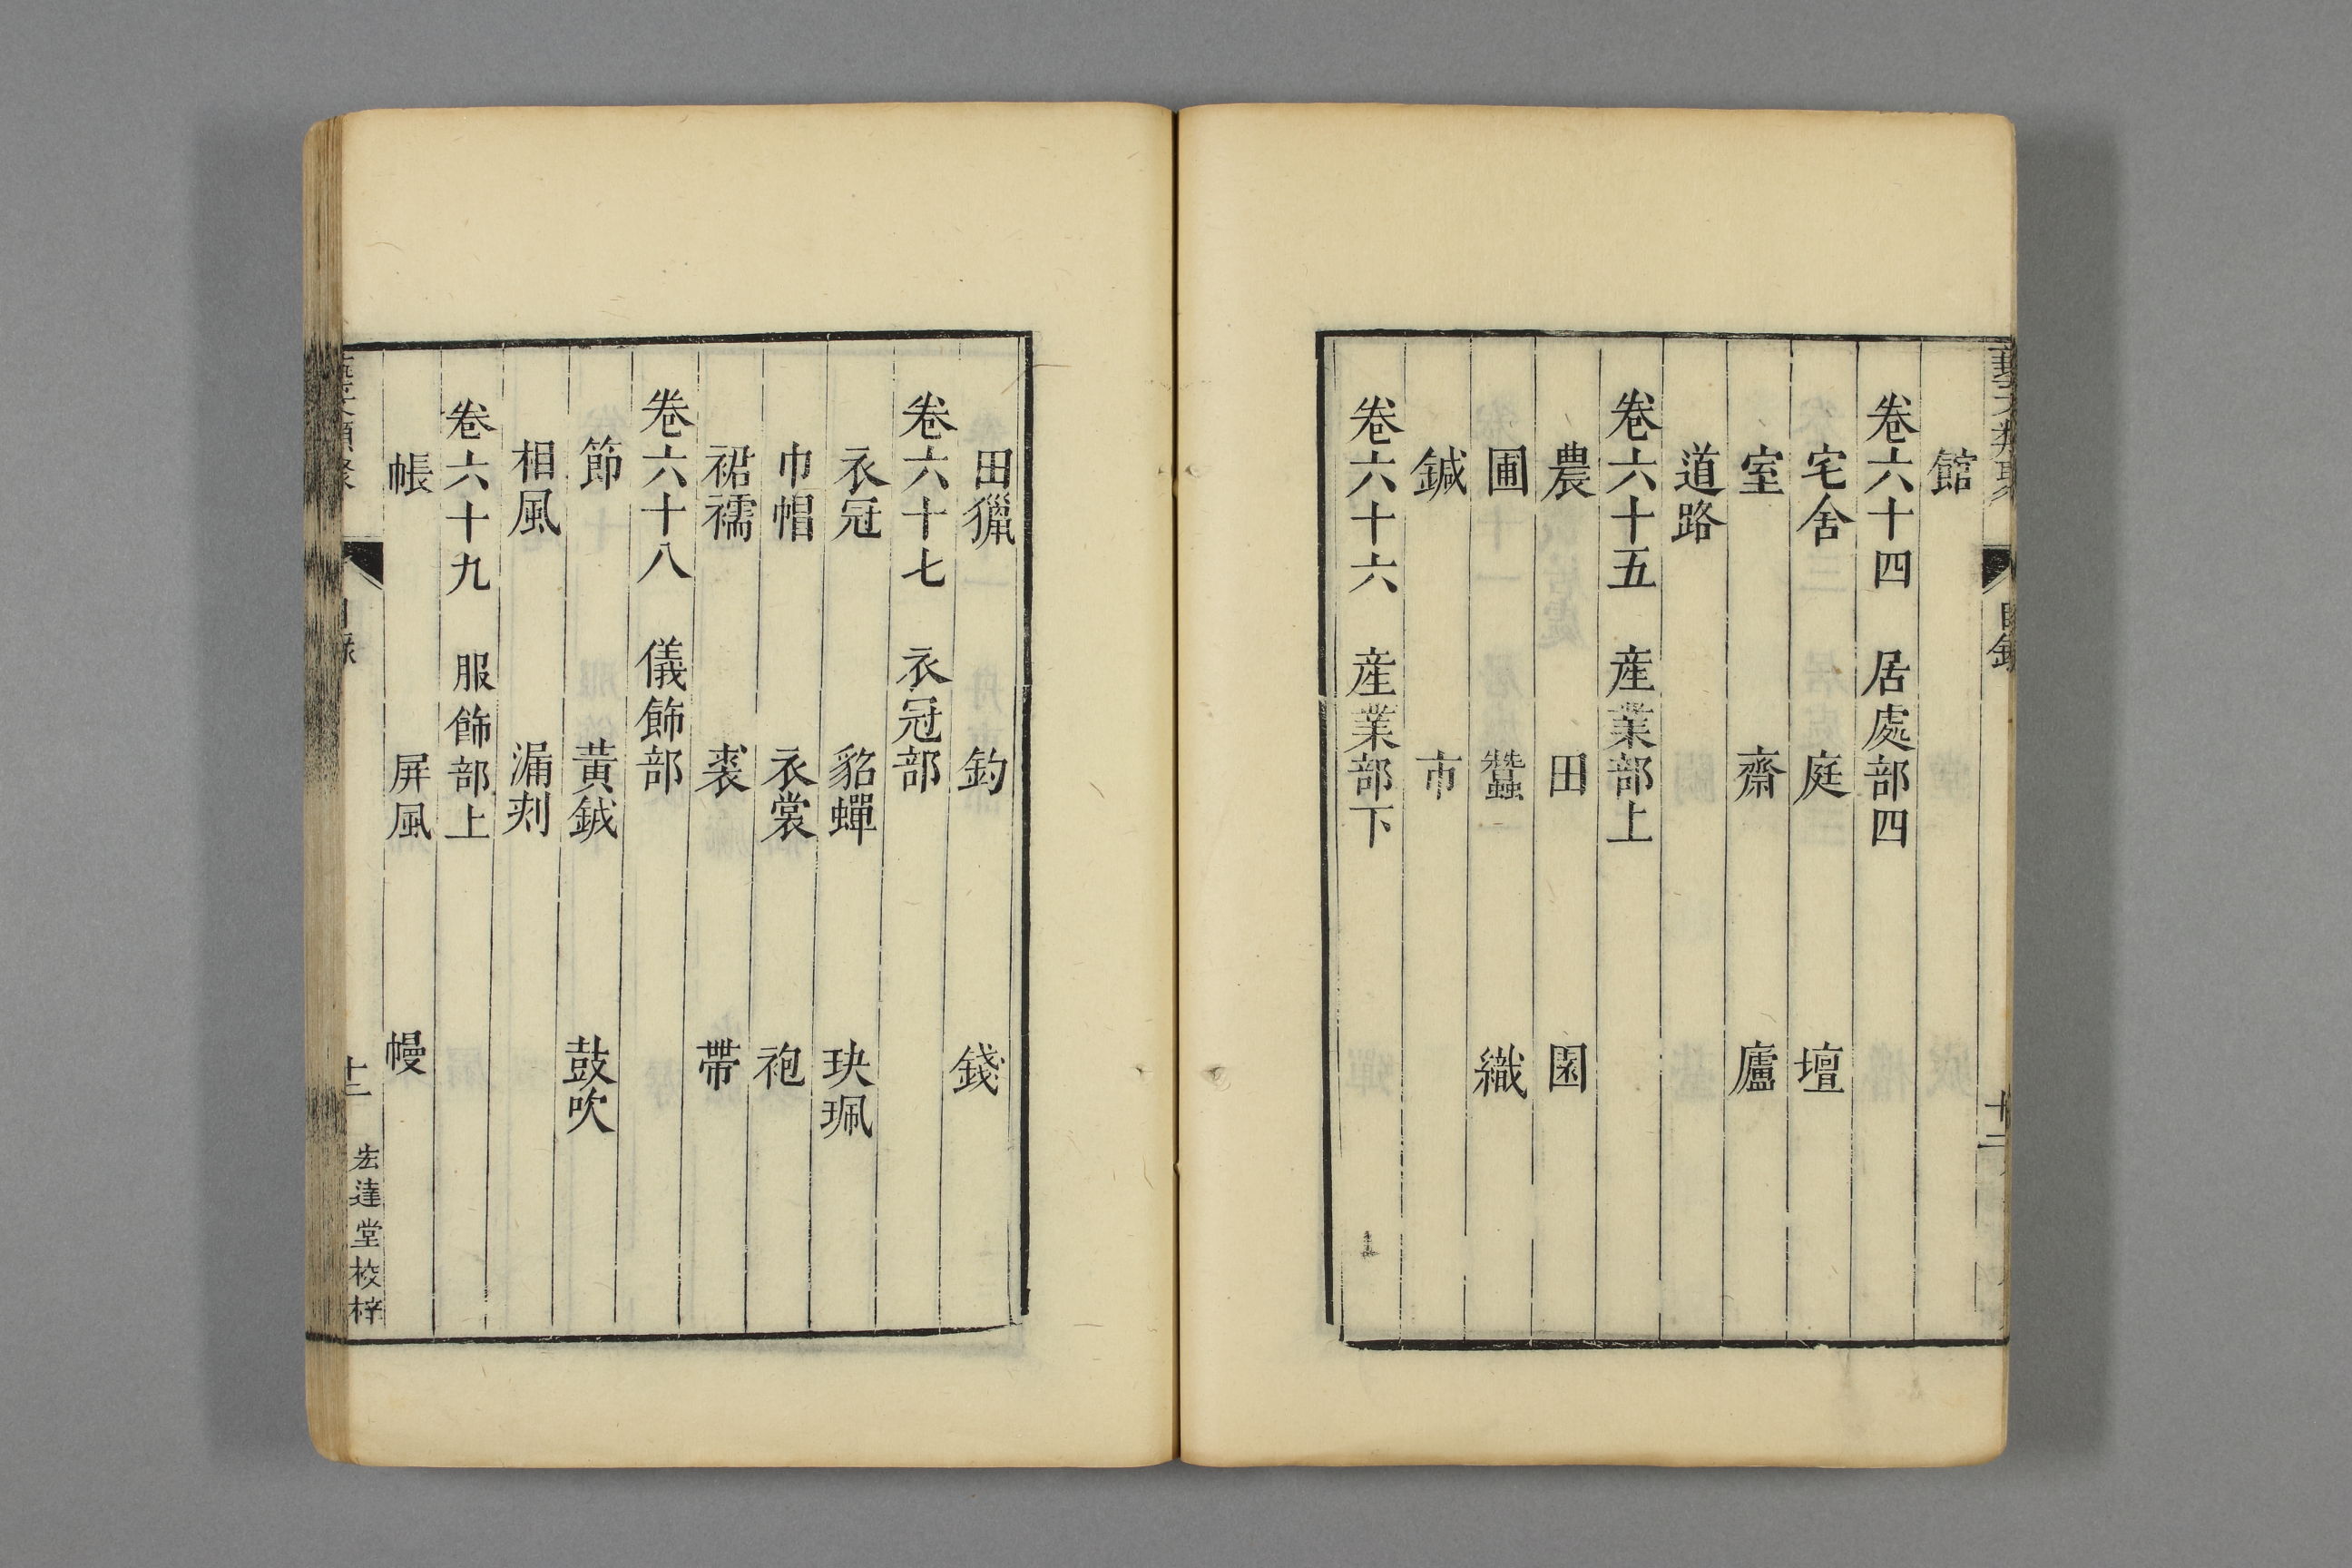 館
卷六十四 居處部四
宅舍 庭 壇
室 齋 廬
道路
卷六十五 產業部上
農 田 園
圃 蠶 織
鍼 市
卷六十六 產業部下
田獵 釣 錢
卷六十七 衣冠部
衣冠 貂蟬 玦珮
巾帽 衣裳 袍
裙襦 裘 帶
卷六十八 儀飾部
節 黃鉞 鼓吹
相風 漏刻
卷六十九 服飾部上
帳 屏風 幔
宏達堂校梓